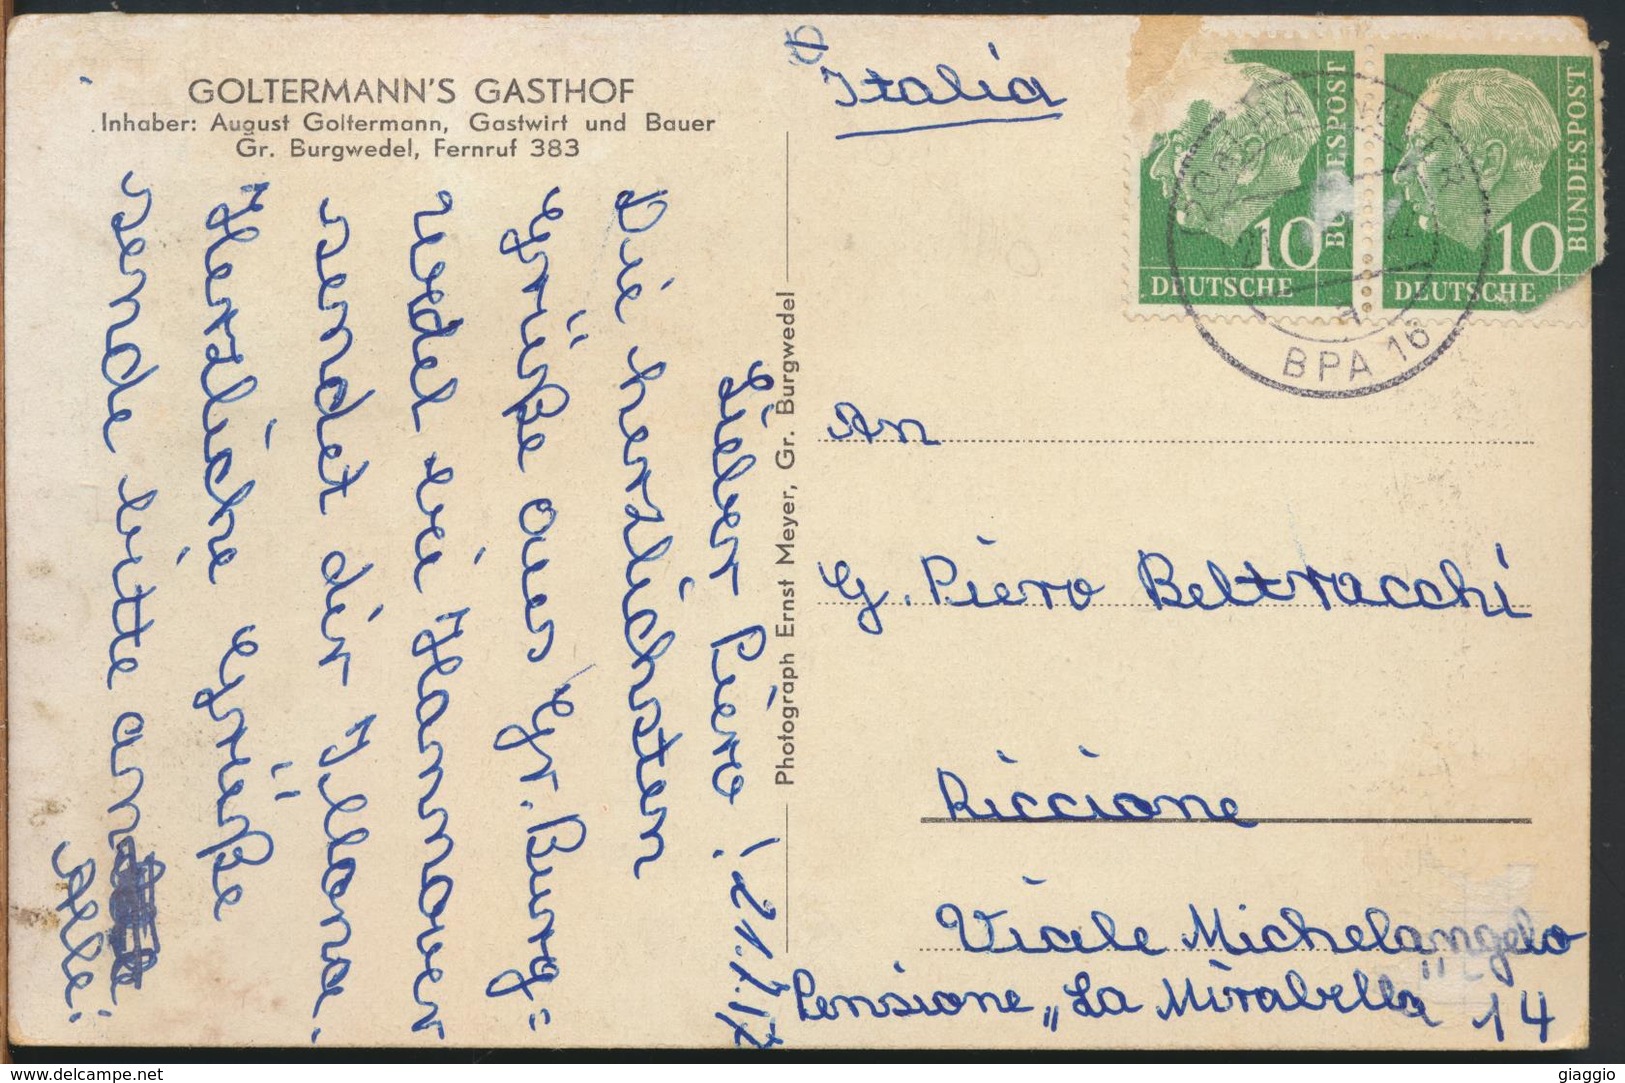 GOLTERMANN'S GASTHOF
Inhaber: August Goltermann, Gastwirt und Bauer
Gr. Burgwedel, Fernruf 383
Lieber Piero! 21.7.
Die herzlichsten
Grüße aus Gr. Burg=
wedel bei Hannover
sendet dir Illona.
Herzliche Grüße
sende bitte an
Alle.
Photograph Ernst Meyer, Gr. Burgwedel
Italia
10 BUNDESPOST
DEUTSCHE
10 BUNDESPOST
DEUTSCHE
BPA 16
An
G. Piero Beltracchi
Riccione
Viale Michelangelo
Pensione „La Mirabella" 14
delcampe.net
giaggio